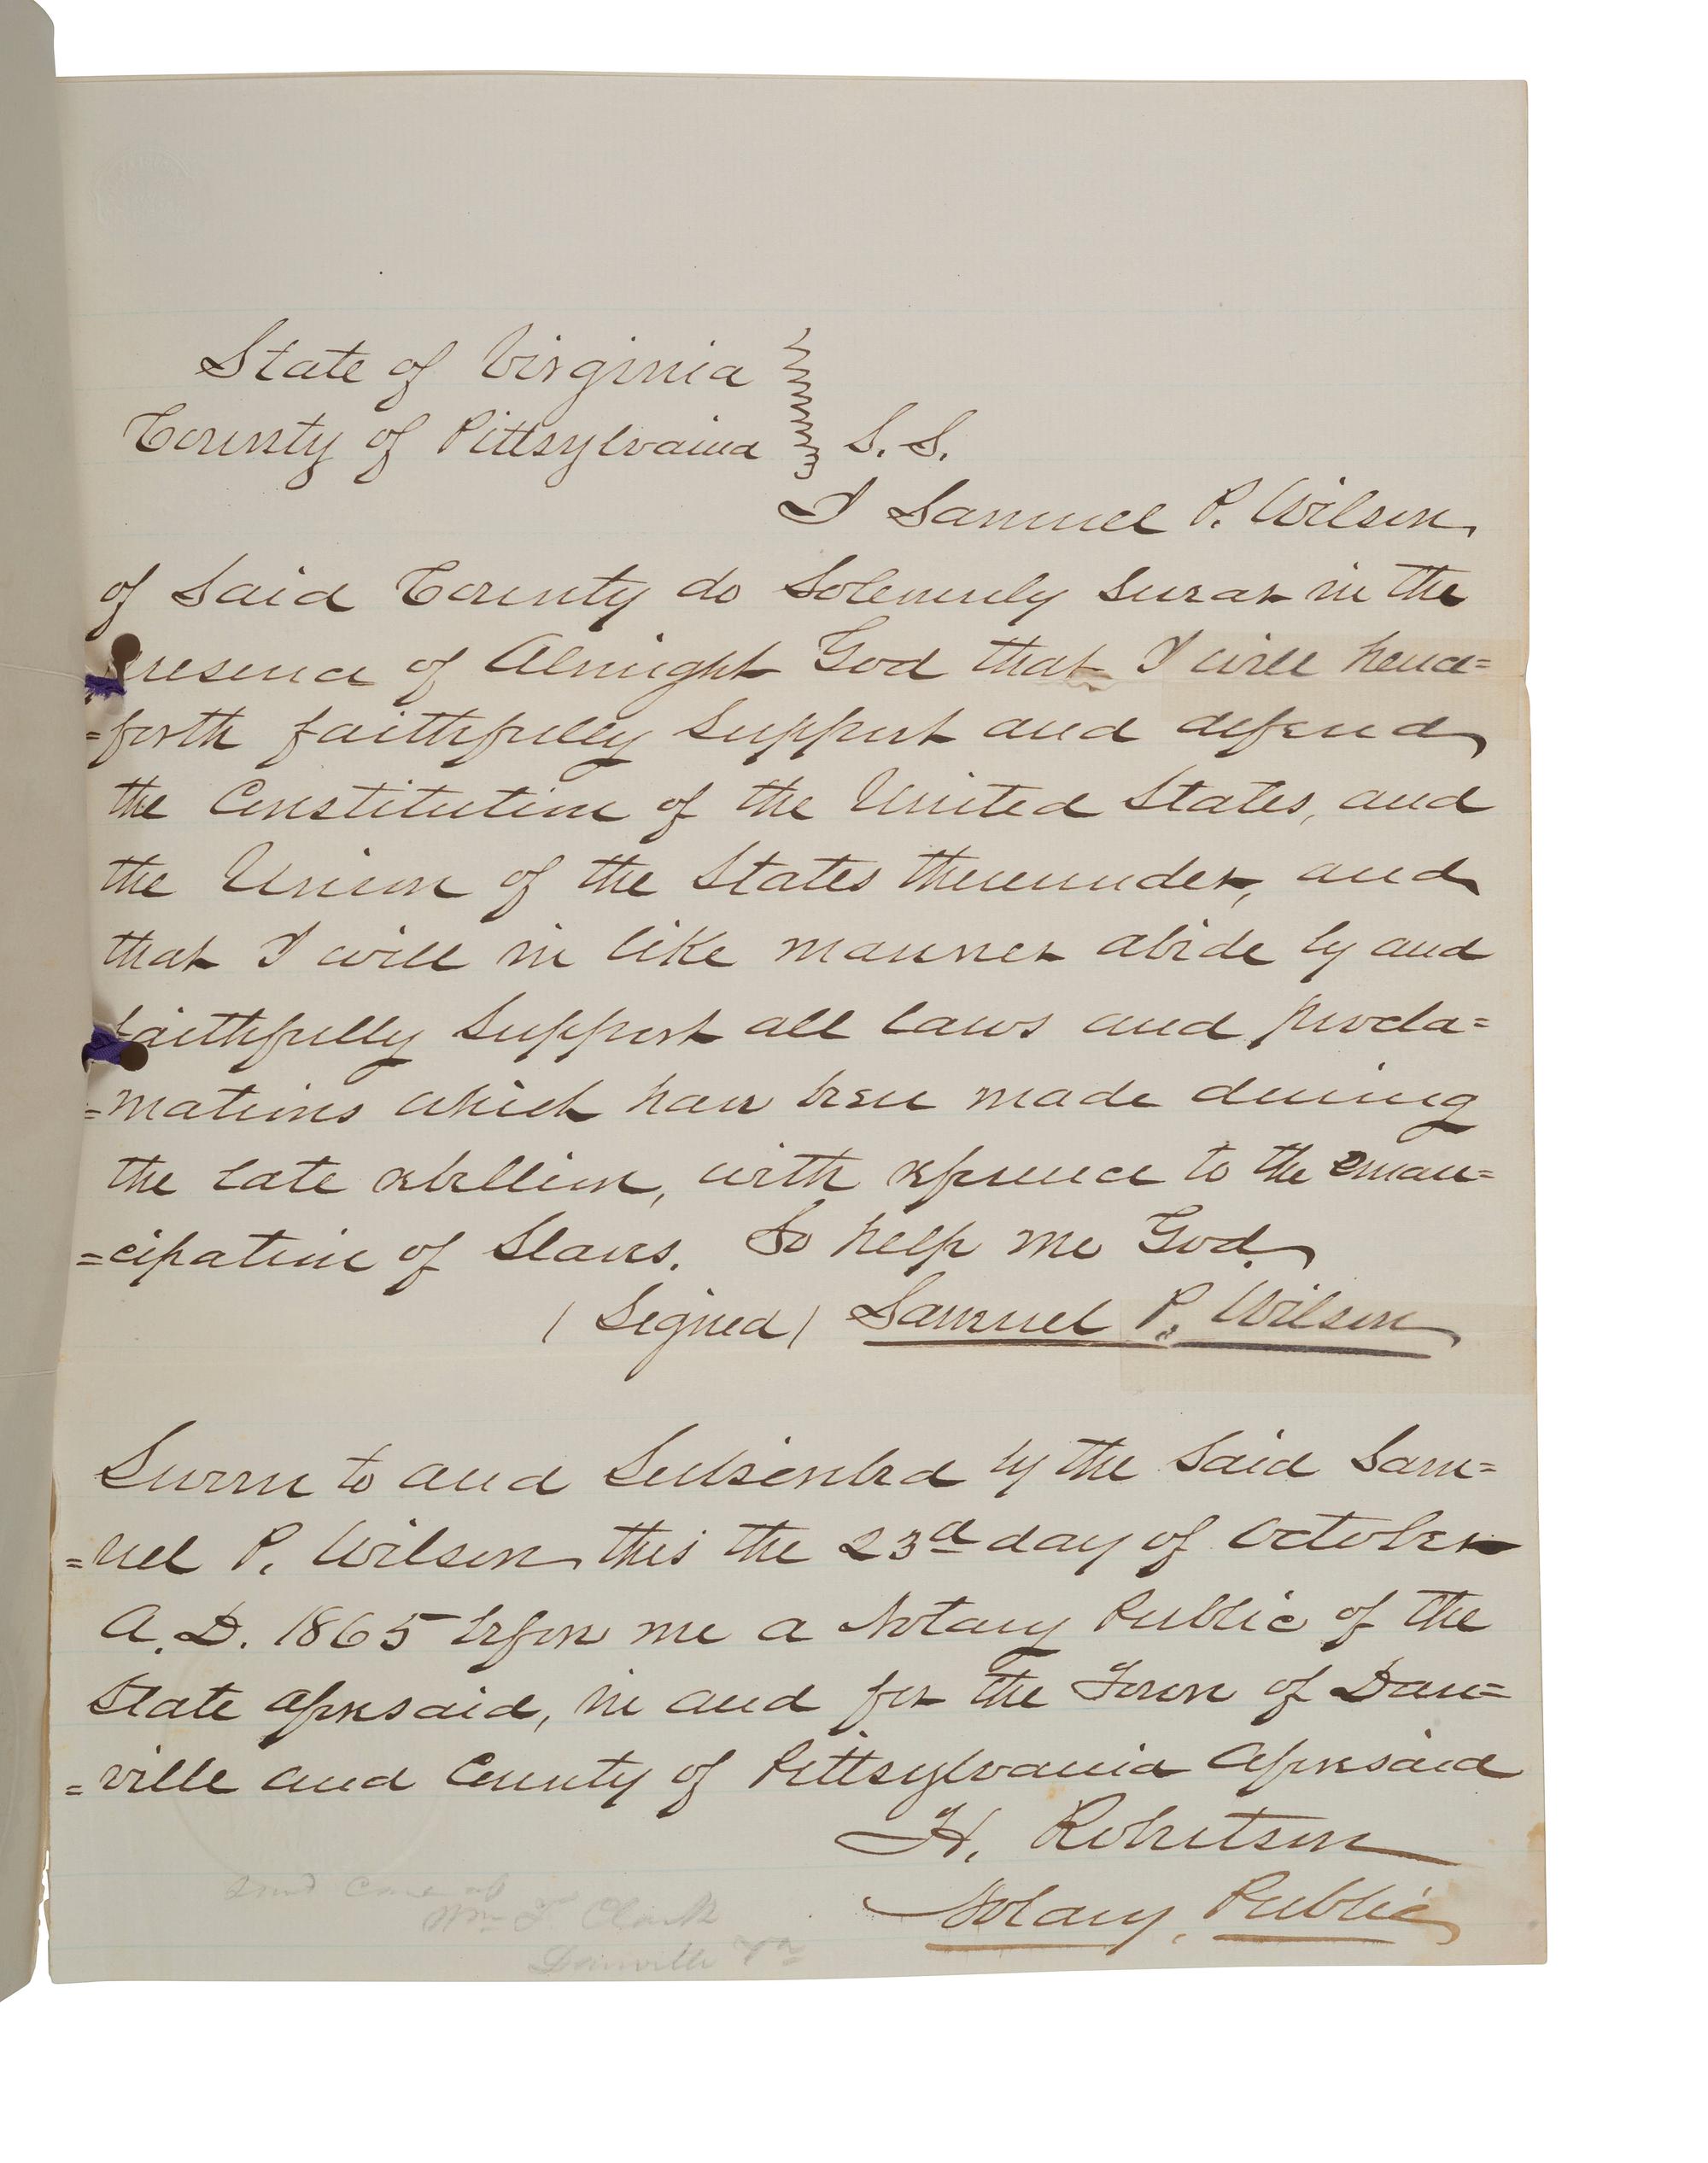 State of Virginia
County of Pittsylvania S. S.
I Samuel P. Wilson
of Said County do Solemnly Swear in the
presence of Almight God that I will hence=
=forth faithfully Support and defend
the Constitution of the United States, and
the Union of the States thereunder, and
that I will in like manner abide by and
faithfully Support all laws and procla=
=mations which have been made during
the late rebellion, with reference to the eman=
=cipation of Slaves. So help me God.
(Signed) Samuel P. Wilson
Sworn to and Subscribed by the Said Sam=
=uel P. Wilson, this the 23d day of October
A.D. 1865 before me a Notary Public of the
State aforesaid, in and for the Town of Dan=
=ville and County of Pittsylvania Aforesaid
H. Robertson
Notary, Public
Send Care of
Wm T Clark
Danville Va